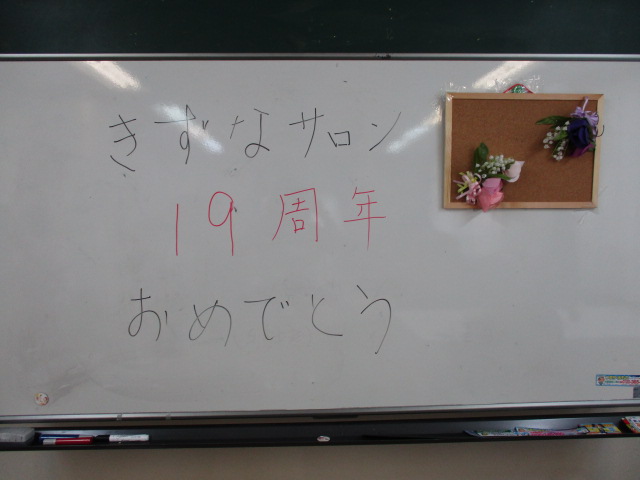 きずなサロン
19周年
おめでとう